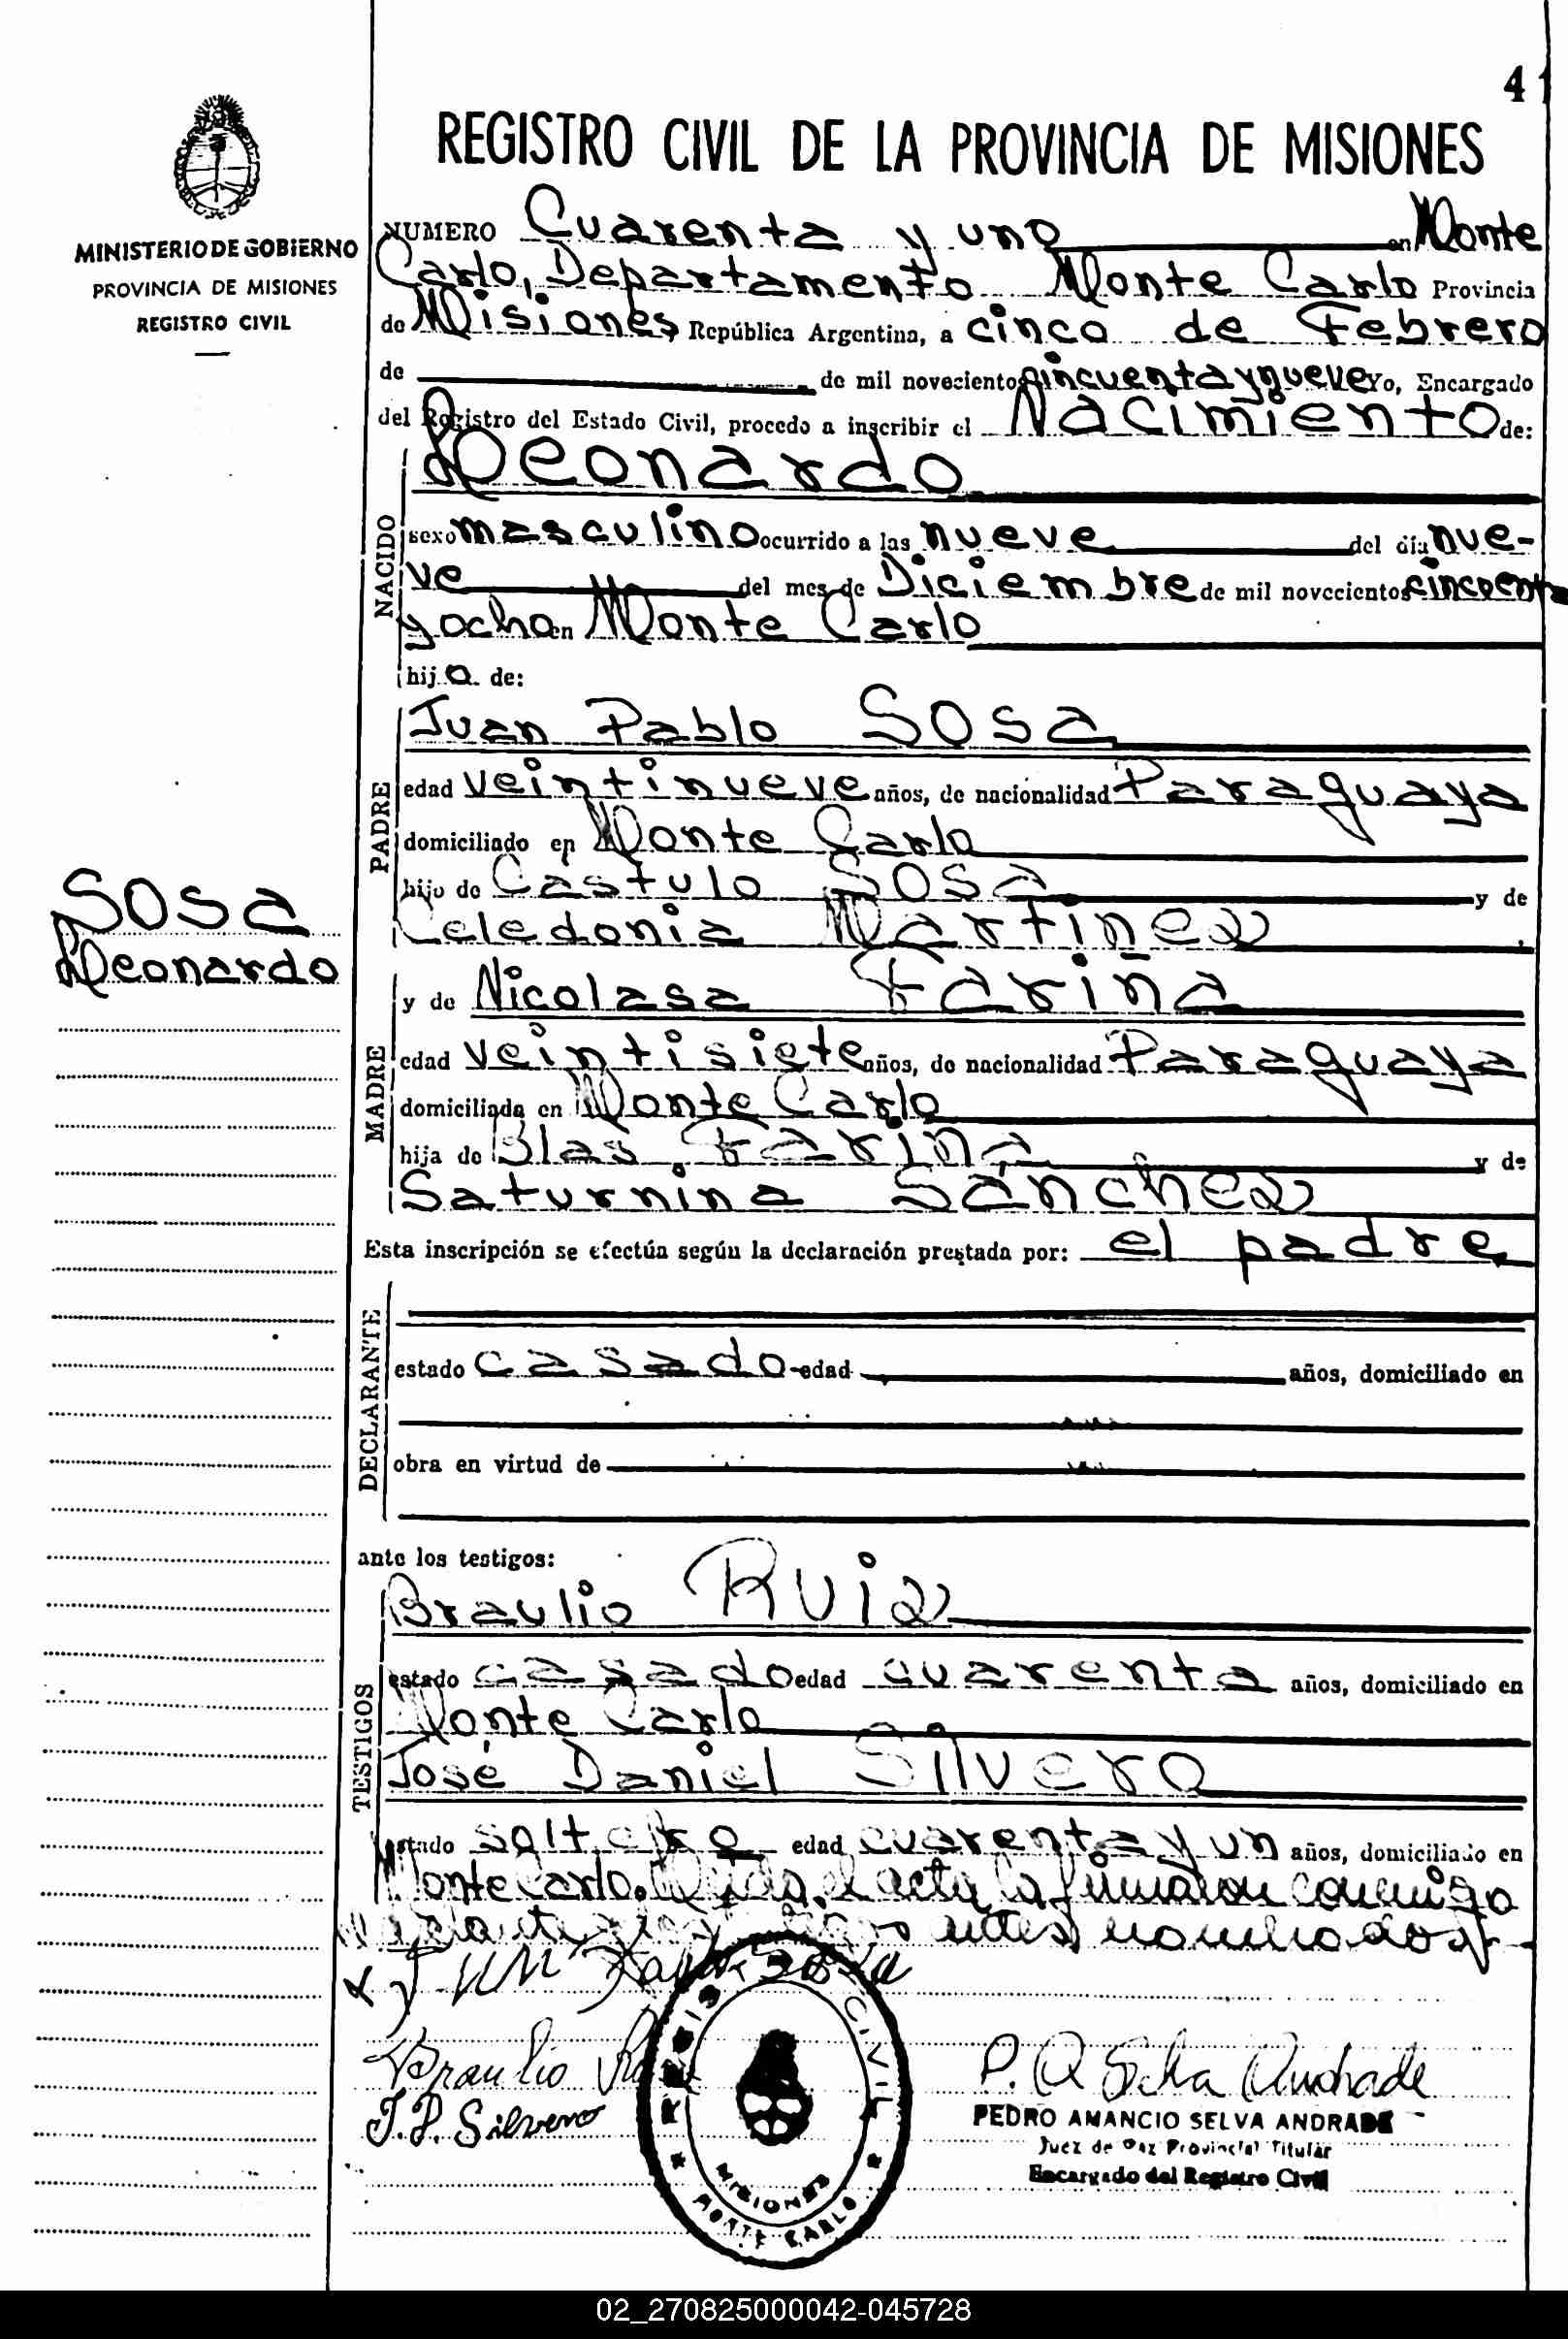 41
REGISTRO CIVIL DE LA PROVINCIA DE MISIONES
MINISTERIO DE GOBIERNO
PROVINCIA DE MISIONES
REGISTRO CIVIL
NUMERO Cuarenta y uno en Monte
Carlo, Departamento Monte Carlo Provincia
de Misiones República Argentina, a cinco de Febrero
de de mil novecientos cincuenta y nueve Yo, Encargado
del Registro del Estado Civil, procedo a inscribir el Nacimiento de:
NACIDO
Leonardo
sexo masculino ocurrido a las nueve del día nue-
ve del mes de Diciembre de mil novecientos cincuenta
y ocho en Monte Carlo
hijo de:
PADRE
Juan Pablo Sosa
edad veintinueve años, de nacionalidad Paraguaya
domiciliado en Monte Carlo
hijo de Castulo Sosa y de
Celedonia Martinez
Sosa
Leonardo
MADRE
y de Nicolasa Fariña
edad veintisiete años, de nacionalidad Paraguaya
domiciliada en Monte Carlo
hija de Blas Fariña y de
Saturnina Sánchez
Esta inscripción se efectúa según la declaración prestada por: el padre
DECLARANTE
estado casado edad años, domiciliado en
obra en virtud de
ante los testigos:
TESTIGOS
Braulio Ruiz
estado casado edad cuarenta años, domiciliado en
Monte Carlo
José Daniel Silvero
estado soltero edad cuarenta y un años, domiciliado en
Monte Carlo. Leida el acta la firmaron conmigo
antes nombrados
Juan Pablo Sosa
Braulio Ruiz
J. D. Silvero
P. A Selva Andrade
PEDRO AMANCIO SELVA ANDRADE
Juez de Paz Provincial Titular
Encargado del Registro Civil
REGISTRO CIVIL
MISIONES
MONTE CARLO
02_270825000042-045728